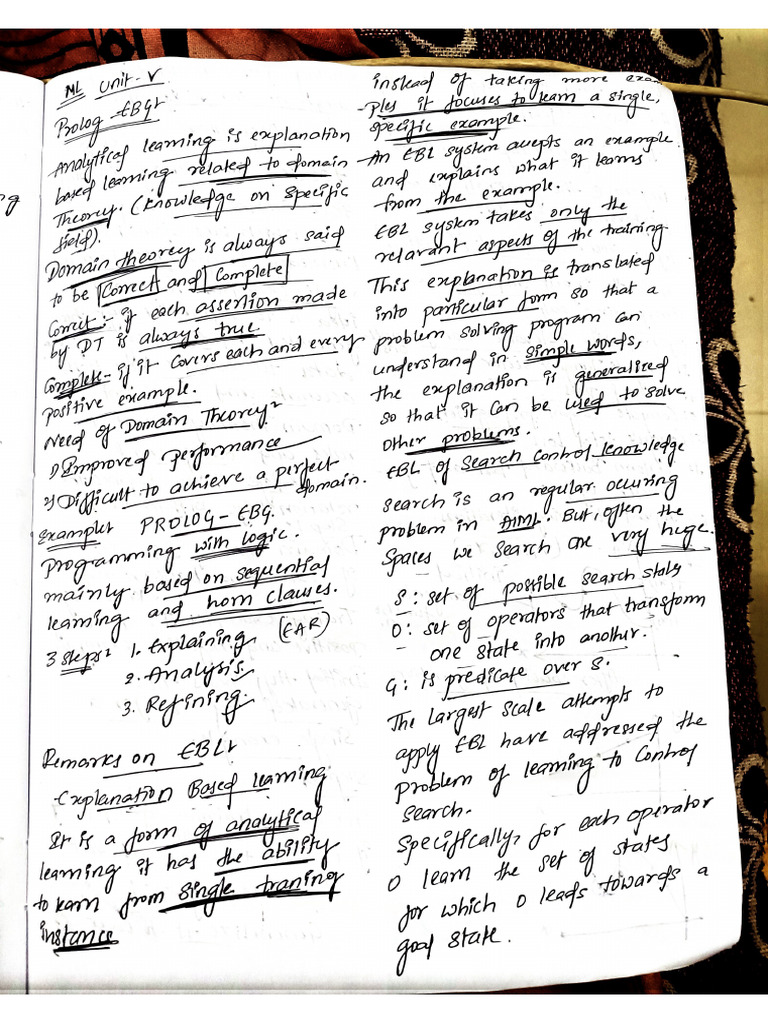 ML Unit-V
Prolog-EBG:
Analytical learning is explanation
based learning related to domain
Theorey. (knowledge on specific
field).
Domain theorey is always said
to be Correct and Complete
Corrct:- if each assertion made
by DT is always true
Complete- if it covers each and every
positive example.
Need of Domain Theorey:
1) Improved performance
2) Difficult to achieve a perfect
domain.
Example: PROLOG-EBG.
Programming with logic.
mainly based on sequential
learning and horn clauses.
3 steps: 1. Explaining (EAR)
2. Analysis
3. Refining.
Remarks on EBL:
Explanation Based learning
It is a form of analytical
learning it has the ability
to learn from single traning
instance
instead of taking more exam
-ples it focuses to learn a single,
specific example.
-An EBL system accepts an example
and explains what it learns
from the example.
EBL system takes only the
relavant aspects of the training.
This explanation is translated
into particular form so that a
problem solving program can
understand in simple words,
the explanation is generalised
so that it can be used to solve
other problems.
EBL of Search Control knowledge
search is an regular occuring
problem in AIML. But, often the
spaces we search are very huge.
S: set of possible search states
O: set of operators that transform
one state into another.
G: is predicate over S.
The largest scale attempts to
apply EBL have addressed the
problem of learning to control
search.
Specifically, for each operator
O learn the set of states
for which O leads towards a
goal state.